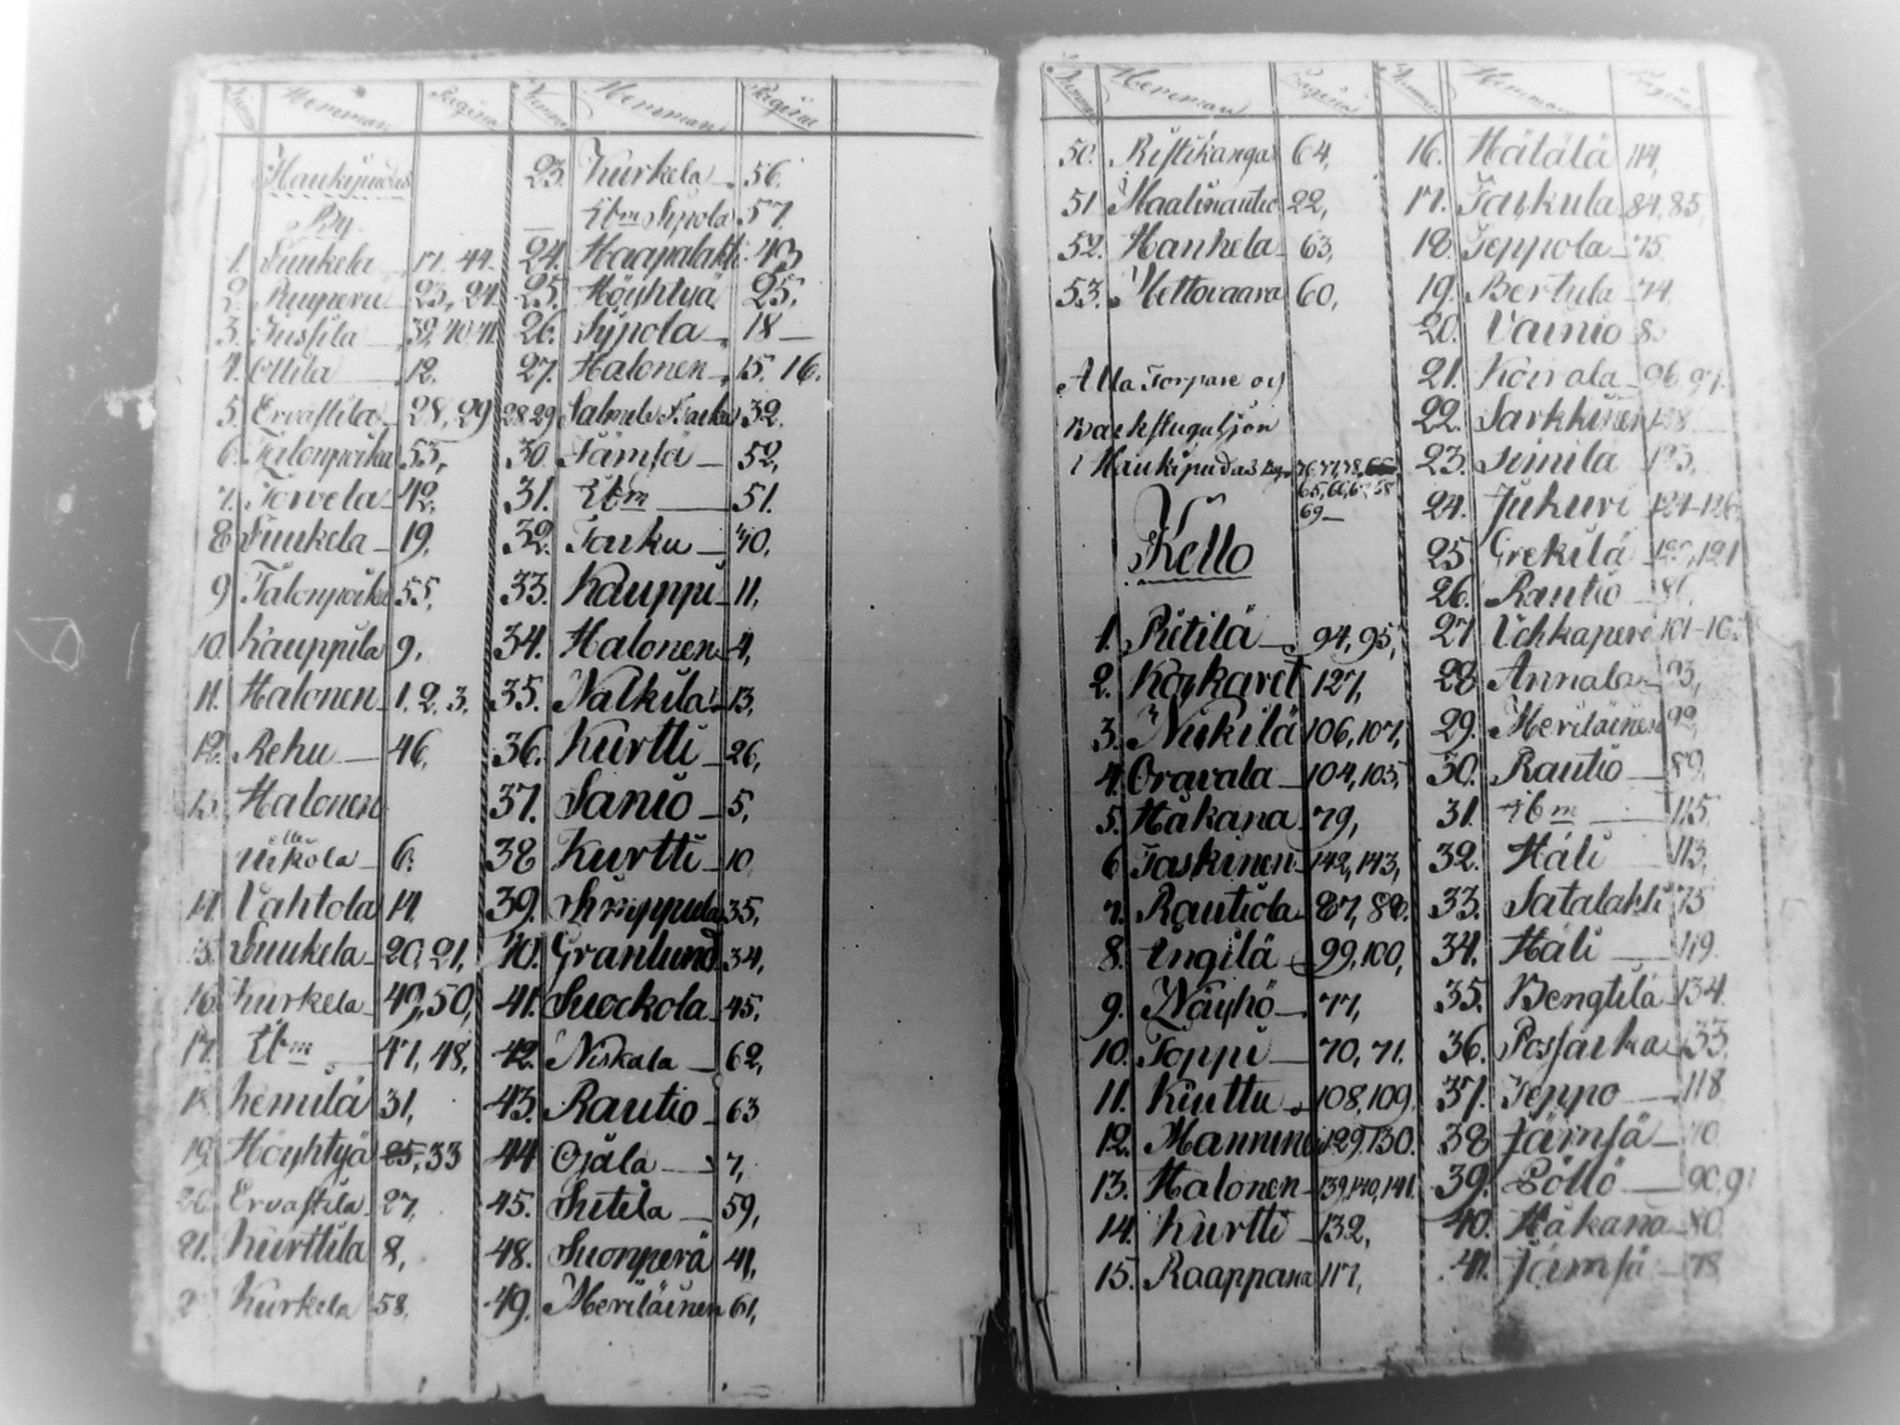 Numme Hemman Pagina Numme Hemman Pagina
Haukipudas
By
1. Suukela 17. 44.
2. Ruuperä 23, 24
3. Jussila 39, 40, 41
4. Ollila 12.
5. Ervastila 28, 29
6. Talonpoika 53,
7. Torvela 42,
8 Suukela 19,
9 Talonpoika 55,
10. Kauppila 9,
11. Halonen 1, 2, 3,
12. Rehu 46,
13. Halonen
eller
Ukkola 6.
14 Vahtola 14
15. Suukela 20, 21,
16. Kurkela 49, 50,
17. Ibm 47, 48,
18. Kemilä 31,
19. Höyhtyä 25, 33
20. Ervastila 27,
21. Kurttila 8,
2 Kurkela 58,
23. Kurkela 56.
Ibm Sipola 57.
24. Haapalahti 43
25. Höyhtyä 25,
26. Sipola 18
27. Halonen 15, 16.
28 29 32.
30 Jämsä 52,
31. Ibm 51.
32. Jauku 30,
33. Kauppi 11,
34. Halonen 4,
35. Nälkilä 13,
36. Kurtti 26,
37. Sanio 5,
38 Kurtti 10,
39. 35,
40. Granlund 34,
41. Suockola 45,
42. Niskala 62,
43. Rautio 63
44 Ojala 7,
45. Sutela 59,
48. Suonperä 41,
49. Meriläinen 61,
Numme Hemman Pagina Numme Hemman Pagina
50. Ristikangas 64,
51 Maalinautio 22,
52. Hankela 63,
53. Mettovaara 60,
Alla Torpare och
Backstuguhjon
i Haukipudas By 76, 77, 78,
65, 66, 67, 68
69
Kello
1. Pitilä 94, 95,
2. Koskavet 127,
3. Niskilä 106, 107,
4. Oravala 104, 105,
5. Håkana 79,
6 Taskinen 142, 143,
7. Rautiola 87, 88.
8. Engilä 99, 100,
9. Näyhö 77,
10. Toppi 70, 71.
11. Kiuttu 108, 109.
12. Manninen 129, 130.
13. Halonen 139, 140, 141.
14. Kurtti 132,
15. Raappana 117,
16. Hälälä 114,
17. Jaukula 84, 85,
18. Jeppola 75
19. Bertula 74
20. Vainio
21. Koivola 96, 97.
22. Sarkkinen
23. Simila
24. Jukuri 124-126,
25. Grekilä 121
26. Rautio
27 Uhkaperä 101-10
28 Annala 93,
29. Meriläinen 92,
30. Rautio 89,
31. Ibm 115
32. Häli 113,
33. Satalahti 75
34. Häli 119.
35. Bengtilä 134
36. Possarka 133
37. Jeppo 118
38 Jämsä
39. Söllö 90, 9
40. Håkana 80
41. Jämsä 78